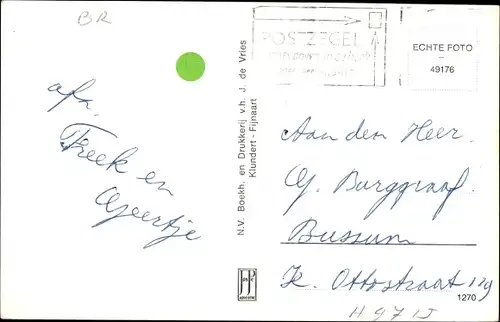 BR
POSTZEGEL
ECHTE FOTO
–
49176
afz.
Freek en
Geertje
N.V. Boekh. en Drukkerij v.h. J. de Vries
Klundert - Fijnaart
Aan den Heer.
G. Burggraaf.
Bussum
K. Ottostraat 119
1270